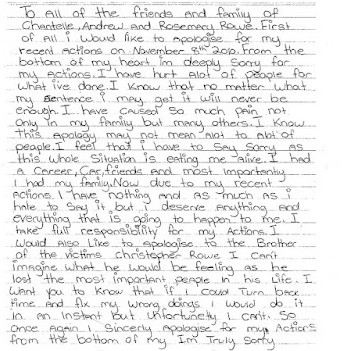 To All of the friends and family of
Chantelle, Andrew and Rosemary Rowe. First
of all i would like to apologise for my
recent actions on November 8th 2010. From the
bottom of my heart im deeply sorry for
my actions. I have hurt alot of people for
what ive done. I know that no matter what
my sentence i may get it will never be
enough. I have caused so much pain not
only in my family but many others. I know
This apology may not mean alot to alot of
people. I feel that i have to say sorry as
this whole situation is eating me alive. I had
a career, car, friends and most importantly
I had my family. Now due to my recent
actions I have nothing and as much as i
hate to say it but i deserve anything and
everything that is going to happen to me. I
take full responsibility for my Actions. I
Would also Like to apologise to the Brother
of the victims christopher Rowe I can't
imagine what he would be feeling as he
lost the most important people in his Life. I
want you to know that if I could turn back
time and fix my wrong doings I would do it
in an instant but unfortunetly I cant. So
once again I sincerly apologise for my Actions
from the bottom of my I'm Truly Sorry